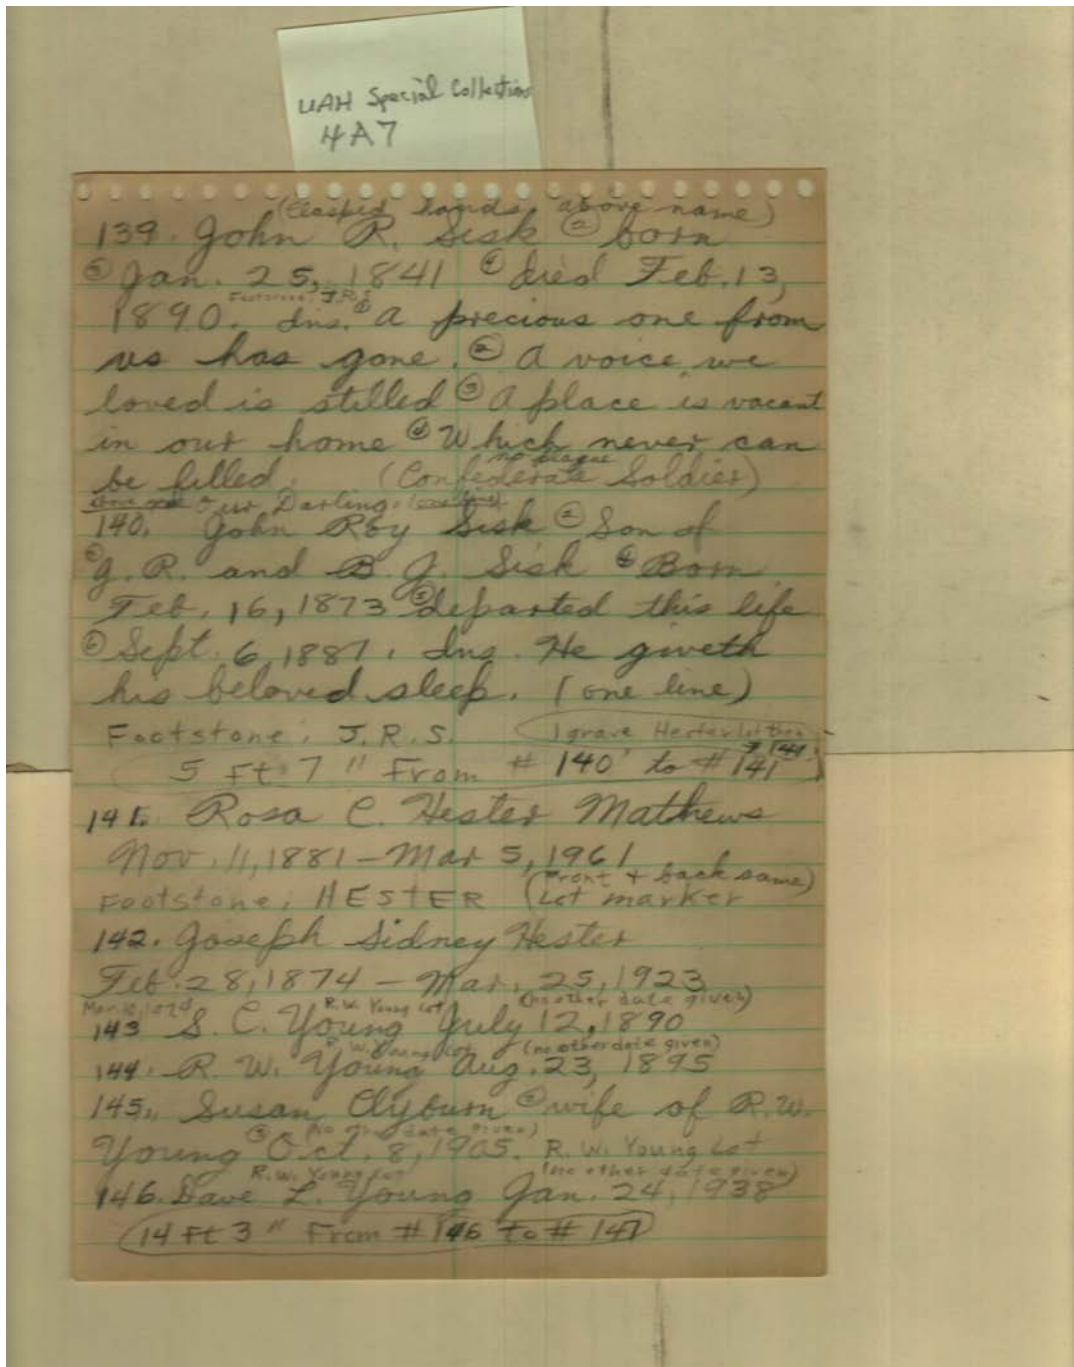 UAH Special Collections
4A7
(Clasped hands above name)
139. John R. Sisk ② born
③ Jan. 25, 1841 ④ died Feb. 13,
Footstone: J.R.S.
1890. Ins. ① A precious one from
us has gone. ② A voice we
loved is stilled ③ A place is vacant
in our home ④ Which never can
no plaque
be filled. (Confederate Soldier)
Our Darling. (one line)
140. John Roy Sisk ② Son of
③ J. R. and B. J. Sisk ④ Born
Feb. 16, 1873 ⑤ departed this life
⑥ Sept. 6, 1887. Ins. He giveth
his beloved sleep. (one line)
Footstone: J.R.S. 1 grave Hester lot
5 Ft 7" From # 140 to # 141
141. Rosa C. Hester Mathews
Nov. 11, 1881 – Mar 5, 1961
(Front + back same)
Footstone: HESTER (Lot marker
142. Joseph Sidney Hester
Feb. 28, 1874 – Mar. 25, 1923
R.W. Young Lot (no other date given)
143 S. C. Young July 12, 1890
R.W. Young Lot (no other date given)
144. R. W. Young Aug. 23, 1895
145. Susan Clyburn ② wife of R.W.
(no other date given)
Young ③ Oct. 8, 1905. R. W. Young Lot
R.W. Young Lot (no other date given)
146. Dave L. Young Jan. 24, 1938
14 Ft 3" From # 146 to # 147